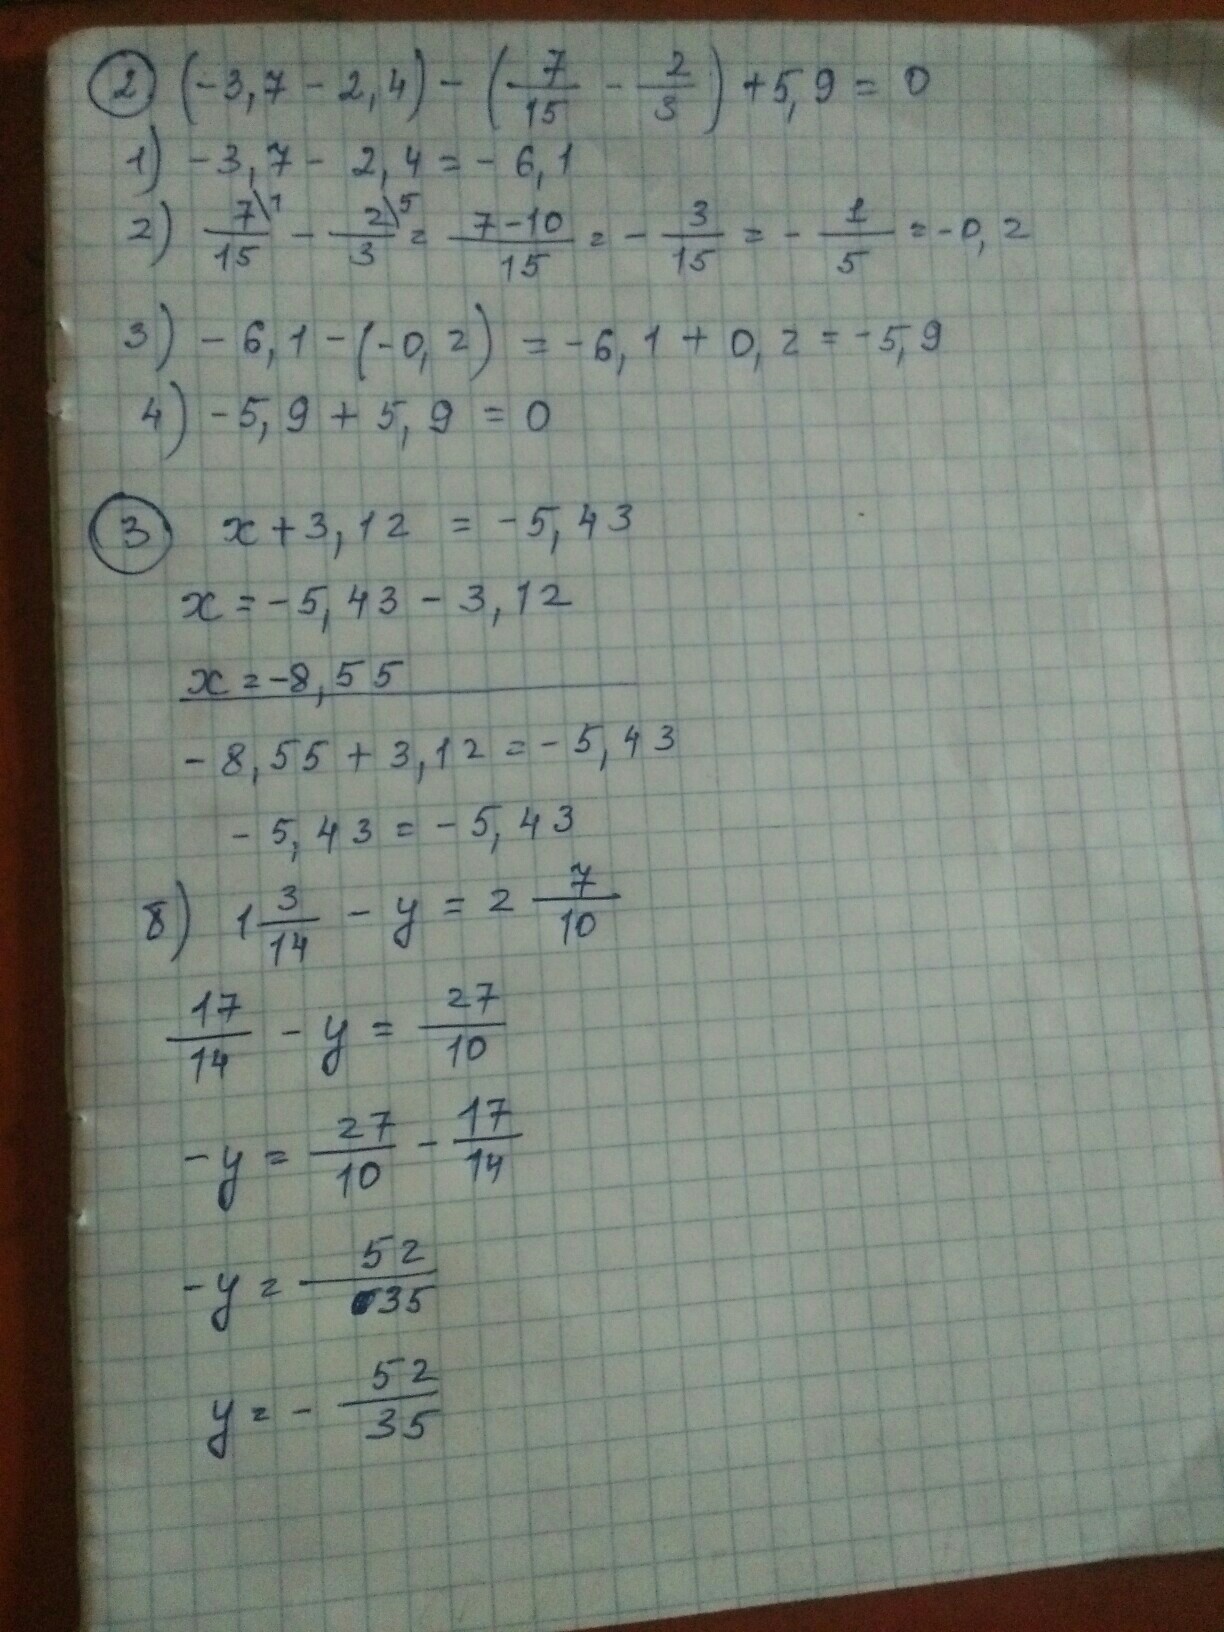 2 (-3,7 - 2,4) - (7/15 - 2/3) + 5,9 = 0
1) -3,7 - 2,4 = - 6,1
2) 7\1/15 - 2\5/3 = 7-10/15 = - 3/15 = - 1/5 = -0,2
3) - 6,1 - (-0,2) = -6,1 + 0,2 = -5,9
4) -5,9 + 5,9 = 0
3 x + 3,12 = -5,43
x = -5,43 - 3,12
x = -8,55
-8,55 + 3,12 = -5,43
-5,43 = -5,43
б) 1 3/14 - y = 2 7/10
17/14 - y = 27/10
-y = 27/10 - 17/14
-y = 52/35
y = - 52/35